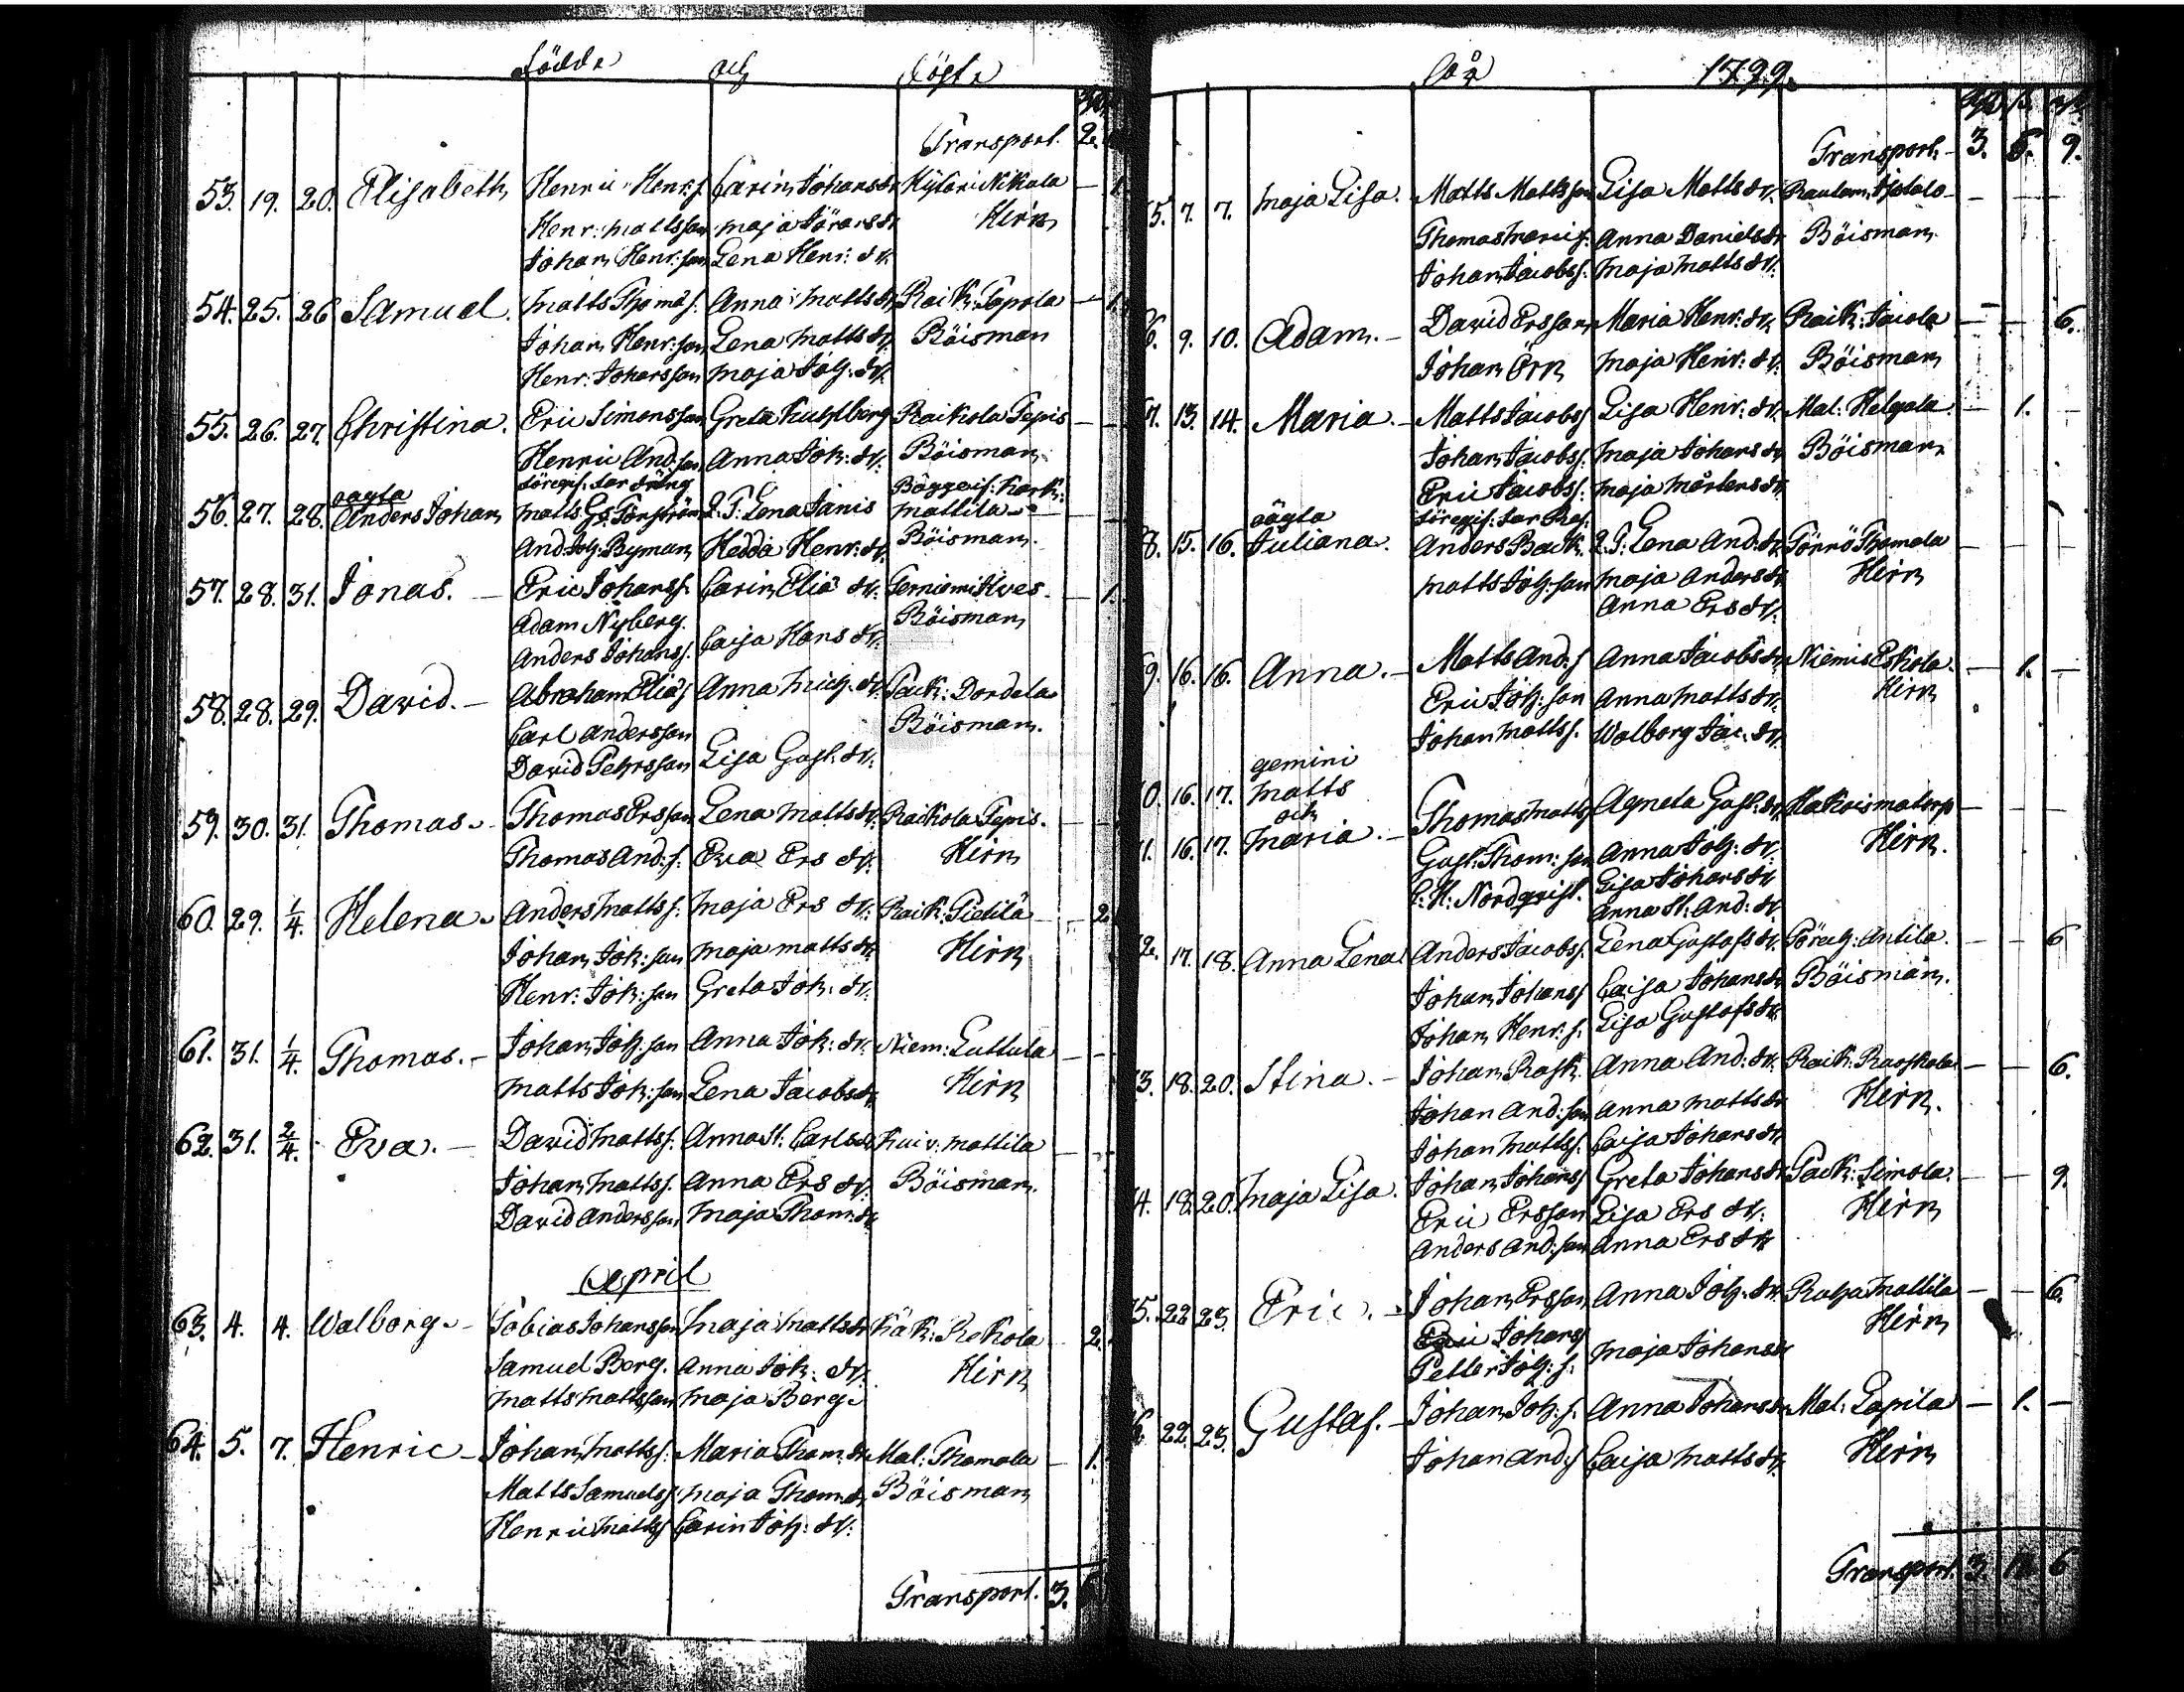 Födde och Döpte
Transport. 2.
53. 19. 20. Elisabeth Henric Henr: s. Carin Johansdr Kyläri Nikala — 1.
Henr: Mattsson Maja Göransdr Hirn
Johan Henr: son Lena Henr: dr.
54. 25. 26 Samuel. Matts Thomas s. Anna Mattsdr Raik: Tapola — 1.
Johan Henr: son Lena Mattsdr. Böisman
Henr: Johansson Maja Joh: dr.
55. 26. 27. Christina. Eric Simonsson Greta Kuhlberg Raikola Tepis —
Henric And: son Anna Joh: dr. Böisman
föregif: far Dräng Bagge if: Kark:
56. 27. 28. oägta Anders Johan Matts Gs. Torström Q: P: Lena Janis Mattila —
And: Joh: Byman Hedda Henr: dr. Böisman.
57. 28. 31. Jonas. — Eric Johanss. Carin Eliæ dr. Ilves — 1.
Adam Nyberg. Böisman
Anders Johanss. Caisa Hans dr.
58. 28. 29. David. — Abraham Elias s Anna Mich: dr. Pack: Dordela
Carl Andersson Böisman.
David Pehrsson Lisa Gust: dr.
59. 30. 31. Thomas. Thomas Ersson Lena Mattsdr. Raikola Tepis. —
Thomas And: s. Eva Ers dr. Hirn
60. 29. 1/4. Helena. Anders Matts s. Maja Ers dr. Raik: Pietilä — 2.
Johan Joh: son Maja Mattsdr. Hirn
Henr: Joh: son Greta Joh: dr.
61. 31. 1/4. Thomas. — Johan Joh: son Anna Joh: dr. Niem: Luttula —
Matts Joh: son Lena Jacobsdr. Hirn
62. 31. 2/4. Eva. — David Matts s. Anna St: Carlsdr Kuiv: Mattila —
Johan Matts s. Anna Ers dr. Böisman.
David Andersson Maja Thom: dr.
April
63. 4. 4. Walborg. — Tobias Johansson Maja Mattsdr Käk: Kokola 2.
Samuel Berg. Anna Joh: dr. Hirn
Matts Mattsson Maja Berg.
64. 5. 7. Henric — Johan Matts s. Maria Thom: dr Mal: Thomola — 1.
Matts Samuels s. Maja Thom: dr Böisman
Henric Matts s Carin Joh: dr.
Transport. 3. 6
För 1799.
Transport. 3. 6. 9.
5. 7. 7. Maja Lisa. Matts Mattsson Lisa Mattsdr. Rautam: — — —
Thomas Anna Danielsdr Böisman
Johan Jacobs s. Maja Mattsdr.
6. 9. 10. Adam. — David Ersson Maria Henr: dr. Raik: Jaiola — — 6.
Johan Örn Maja Henr: dr. Böisman
7. 13. 14. Maria. — Matts Jacobs s Lisa Henr: dr. Mal: Helgala — 1. —
Johan Jacobs s. Maja Johansdr Böisman
Eric Jacobs s. Maja Mårtensdr
oägta föregif: far
8. 15. 16. Juliana. Anders Back. Q: P: Lena And: dr. Pönnö Thomola — — —
Matts Joh: son Maja Andersdr Hirn
Anna Ersdr.
9. 16. 16. Anna. — Matts And: s Anna Jacobsdr Niemis Eskola. — 1. —
Eric Joh: son Anna Mattsdr. Hirn
Johan Matts s. Walborg Jac: dr.
gemini
0. 16. 17. Matts
och Thomas Matts s Agneta Gust: dr. — — —
1. 16. 17. Maria. — Gust: Thom: son Anna Joh: dr. Hirn.
C: H: Nordqvist. Lisa Johansdr
Anna St: And: dr.
2. 17. 18. Anna Lena Anders Jacobs s. Lena Gustafsdr. Antila. — — 6
Johan Johans s Caisa Johansdr Böisman.
Johan Henr: s. Lisa Gustafsdr.
3. 18. 20. Stina. — Johan Rask. Anna And: dr. Raik: Raoskala — — 6.
Johan And: son Anna Mattsdr Hirn.
Johan Matts s. Caisa Johansdr.
4. 18. 20. Maja Lisa. Johan Johans s Greta Johansdr Pack: Simola. — — 9.
Eric Ersson Lisa Ers dr. Hirn
Anders And: son Anna Ersdr
5. 22 23. Eric. — Johan Ersson Anna Joh: dr. Mattila — — 6.
Eric Johans s Maja Johansdr Hirn
Petter Joh: s.
6. 22. 23. Gustaf. — Johan Joh: s. Anna Johansdr Mal: Lapila — 1. —
Johan And: s Caisa Mattsdr. Hirn
Transport. 3. 6